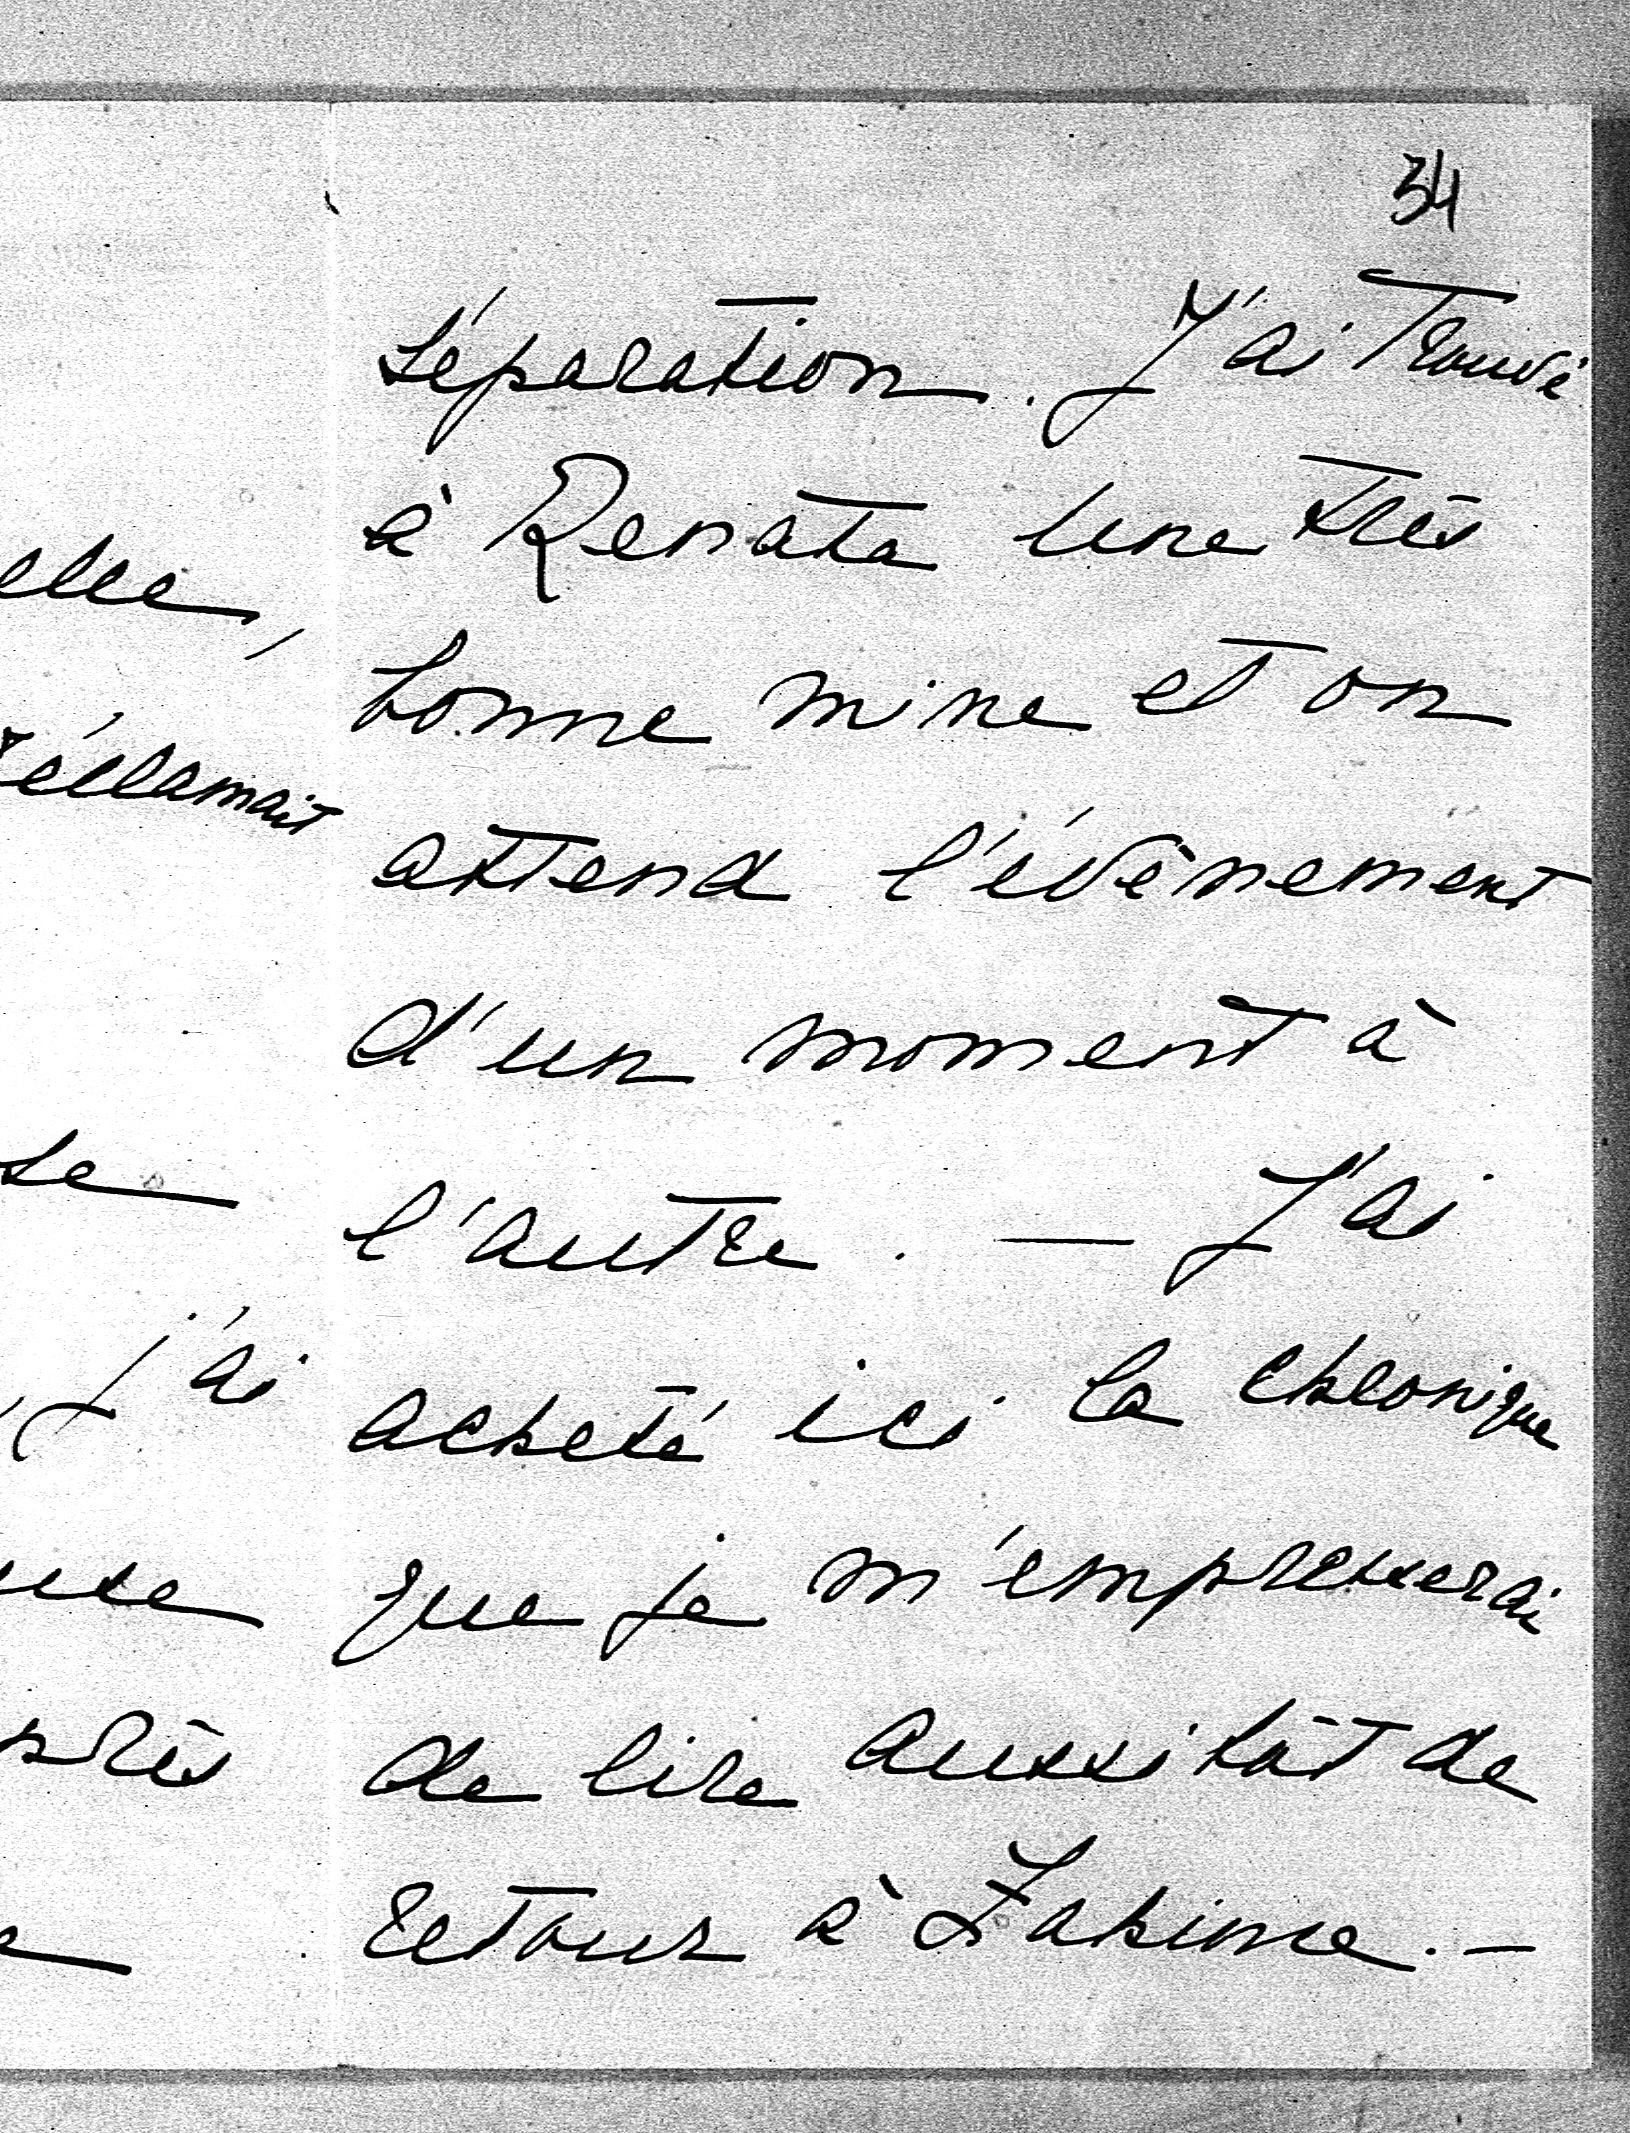 34
séparation. J'ai trouvé
à Renata une très
bonne mine et on
attend l'évènement
d'un moment à
l'autre. — J'ai
acheté ici la chronique
que je m'empresserai
de lire aussitôt de
retour à Łabiune. —
elle,
réclamait
se
j'ai
près